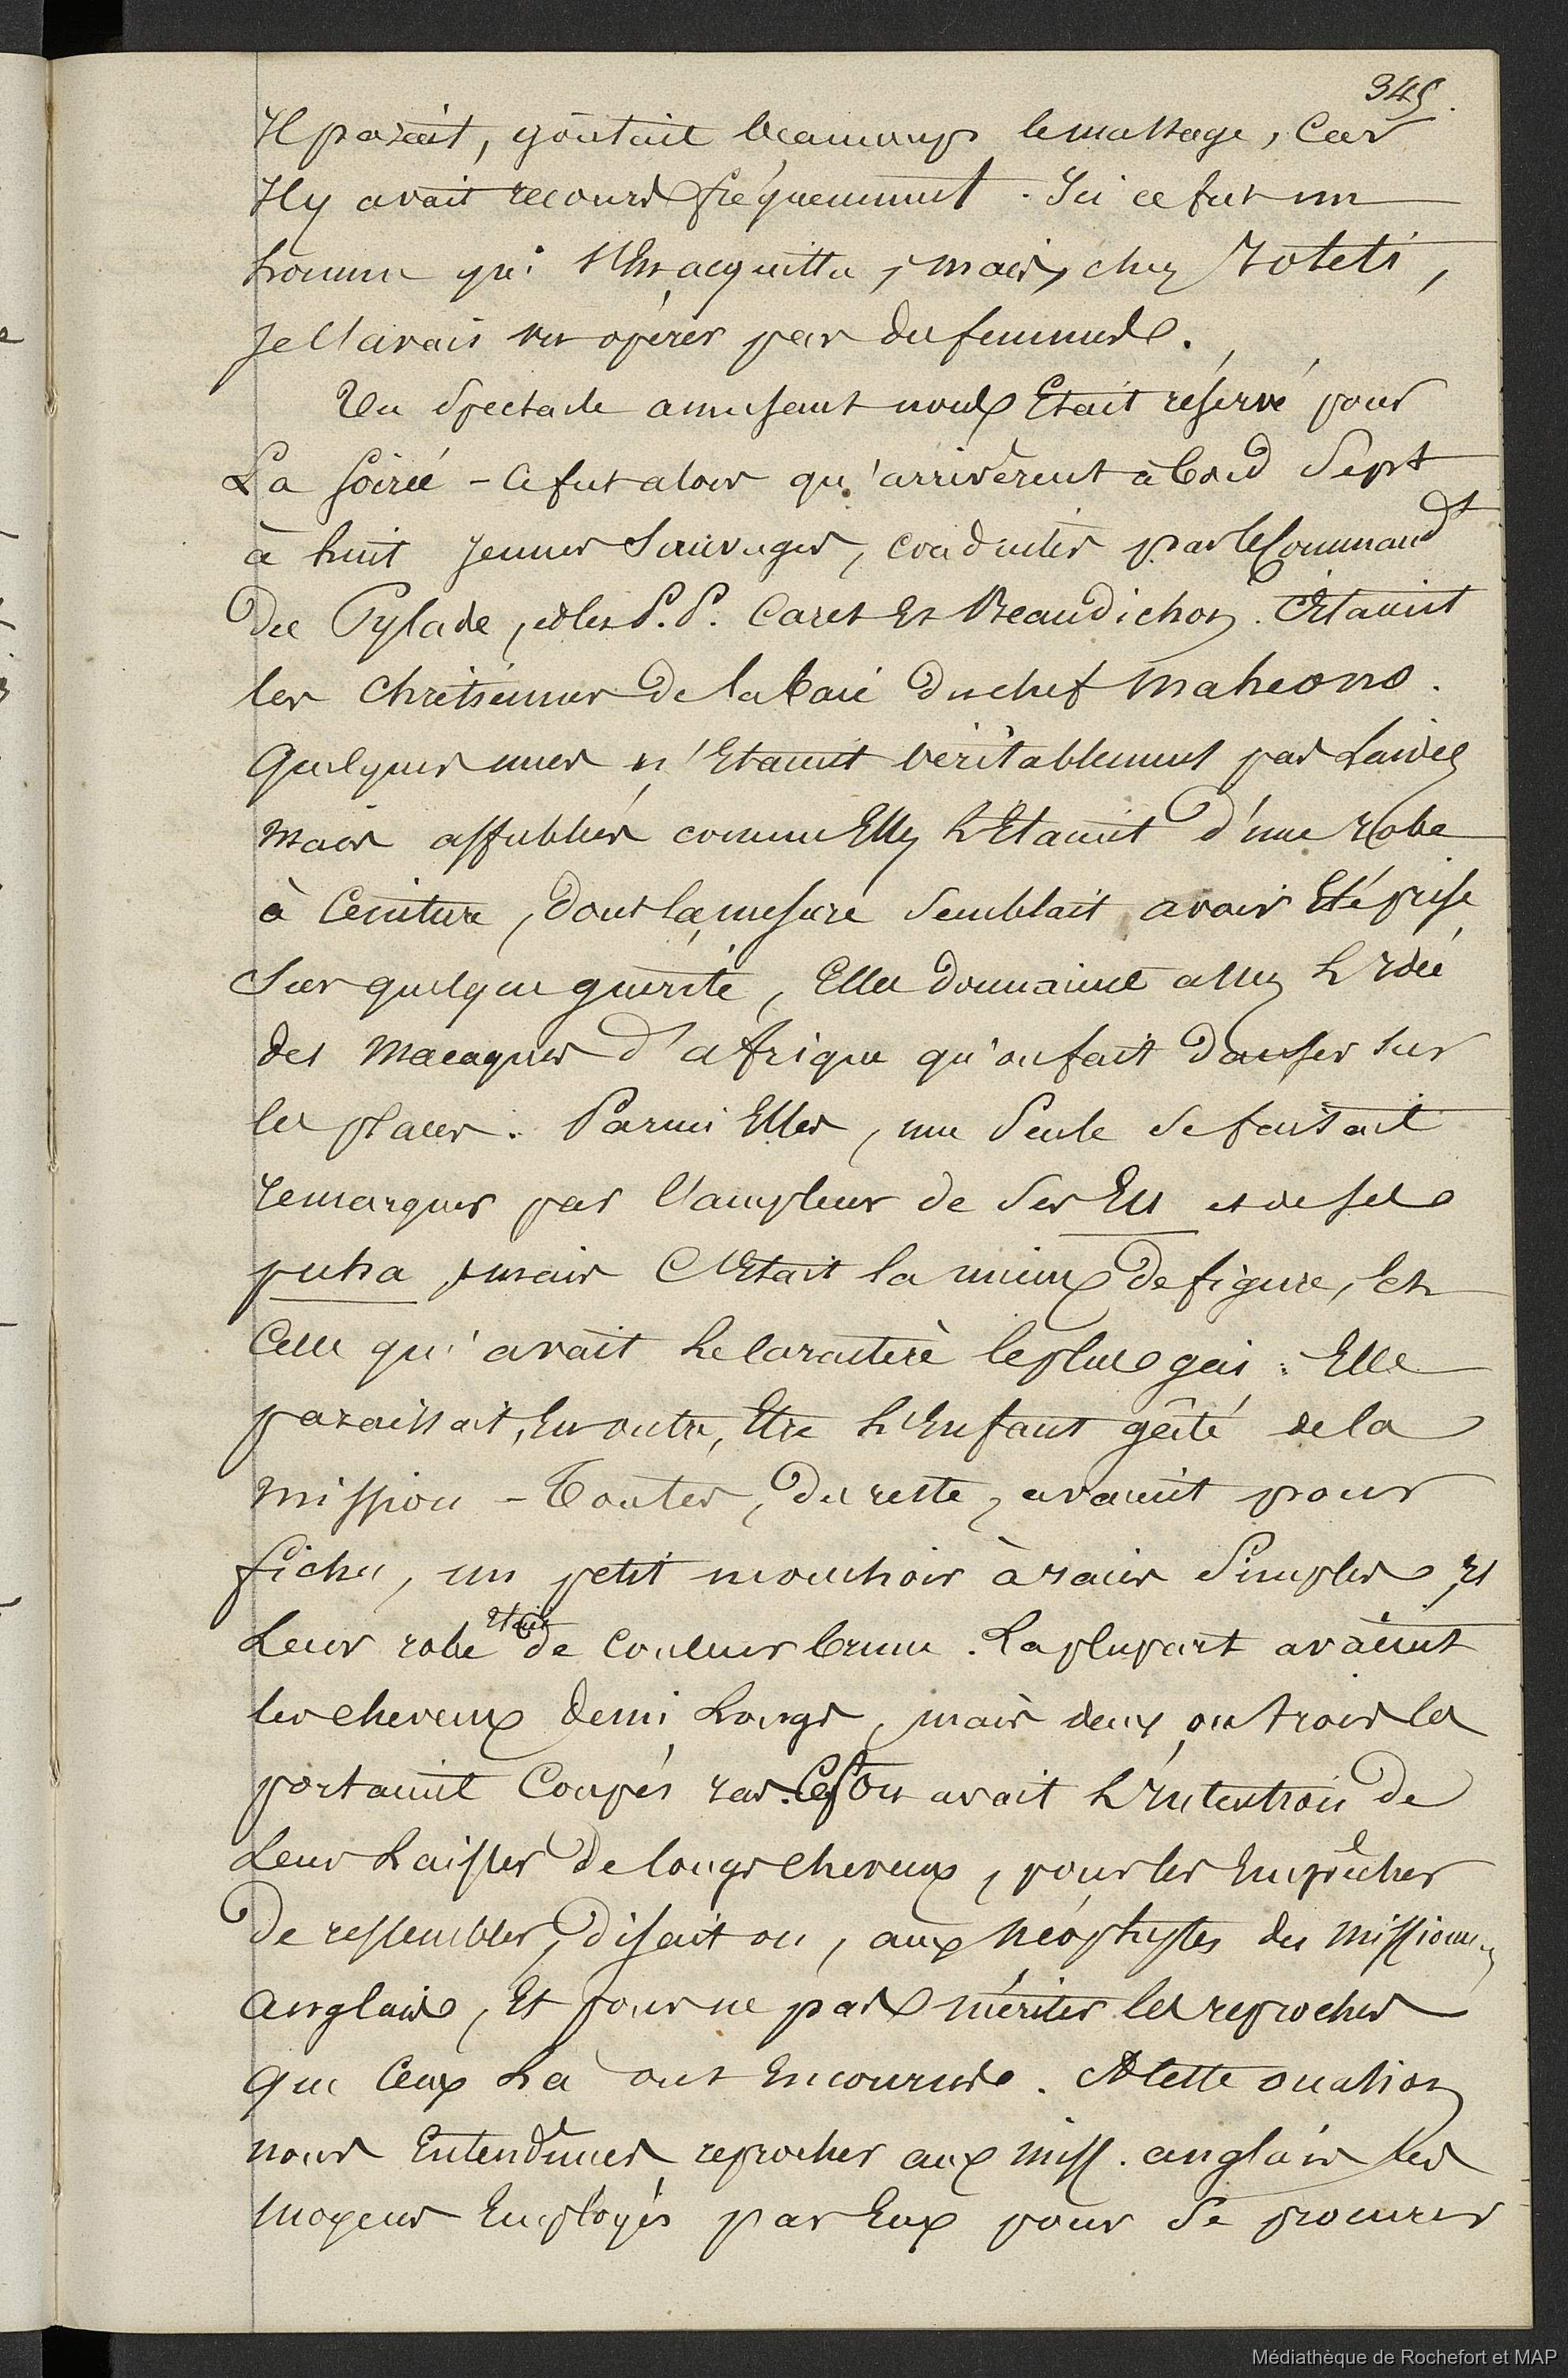 345.
Il parait, goûtait beaucoup le massage, car
Il y avait recours fréquemment. Ici ce fut un
homme qui s'en acquitta, mais, chez Iotété,
je l'avais vu opérer par des femmes.
Un Spectacle amusant nous Etait réservé pour
La soirée - Ce fut alors qu'arrivèrent à bord Sept
à huit jeunes Sauvages, conduites par le Command^t
Du Pylade, et les P. P. Caret Et Beaudichon. C'étaient
les chrétiennes de la baie du chef Maheono.
Quelques unes n'Etaient véritablement pas Laides
Mais affublées comme Elles L'Etaient d'une Robe
à Ceinture, dont la mesure Semblait avoir Eté prise
Sur quelque guérite, Elles donnaient assez L'idée
des Macaques d'afrique qu'on fait danser sur
les places. Parmi Elles, une Seule se faisait
remarquer par l'ampleur de ses Eu et de ses
puha, mais C'Etait la mieux de figure, Et
Celle qui avait Le Caractère le plus gai. Elle
paraissait, En outre, Etre L'Enfant gâté de la
Mission - Toutes, du reste, avaient pour
fichu, un petit mouchoir à raies Simples, Et
Leur robe Etait de Couleur brune. La plupart avaient
les cheveux demi Longs, mais deux ou trois les
portaient Coupés ras. On avait L'Intention de
Leur Laisser de longs cheveux, pour les Empêcher
De ressembler, disait on, aux néophytes des Missionn.
Anglais, Et pour ne pas mériter les reproches
que Ceux La ont Encourus. A cette occasion
nous Entendimes reprocher aux miss. anglais les
moyens Employés par Eux pour Se procurer
Médiathèque de Rochefort et MAP